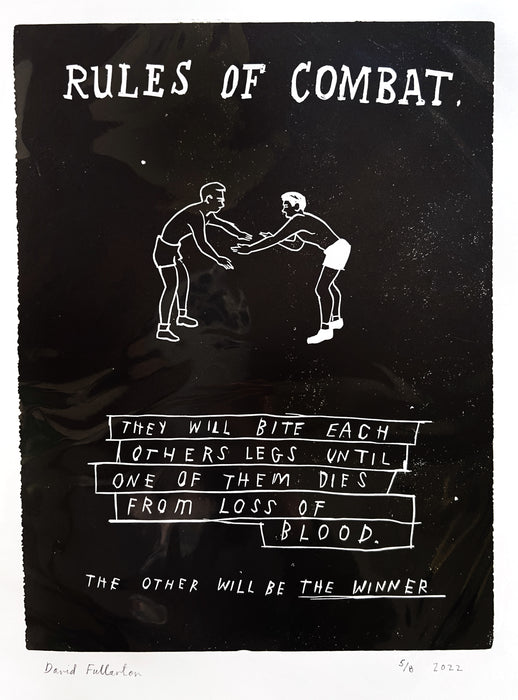 RULES OF COMBAT.
THEY WILL BITE EACH
OTHERS LEGS UNTIL
ONE OF THEM DIES
FROM LOSS OF
BLOOD.
THE OTHER WILL BE THE WINNER
David Fullarton
5/8 2022